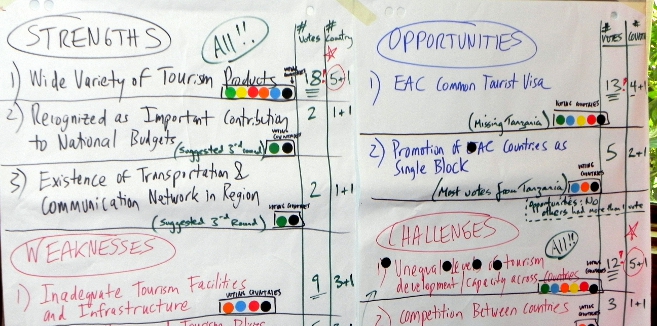 STRENGTHS
All!!
# Votes
# Country
1) Wide Variety of Tourism Products
VOTING COUNTRIES
18! 5+1
2) Recognized as Important Contribution
to National Budgets
(Suggested 3rd round)
VOTING COUNTRIES
2 1+1
3) Existence of Transportation &
Communication Network in Region
(Suggested 3rd Round)
VOTING COUNTRIES
2 1+1
WEAKNESSES
1) Inadequate Tourism Facilities
and Infrastructure
VOTING COUNTRIES
9 3+1
OPPORTUNITIES
# VOTES
#
1) EAC Common Tourist Visa
(Missing Tanzania)
VOTING COUNTRIES
13! 4+1
2) Promotion of AC Countries as
Single Block
(Most votes from Tanzania)
VOTING COUNTRIES
5 2+1
Opportunities: No
others had more than 1 vote
CHALLENGES
All!!
1) Unequal tourism
development / capacity across countries
12! 5+1
2) Competition Between Countries
VOTING COUNTRIES
3 1+1